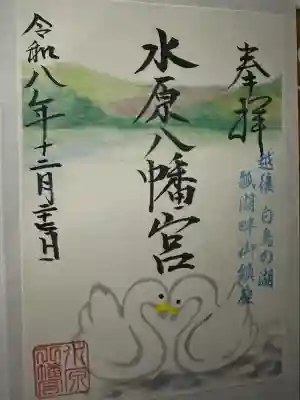 奉拝
越後 白鳥の湖
瓢湖畔山鎮座
水原八幡宮
令和八年十二月二十二日